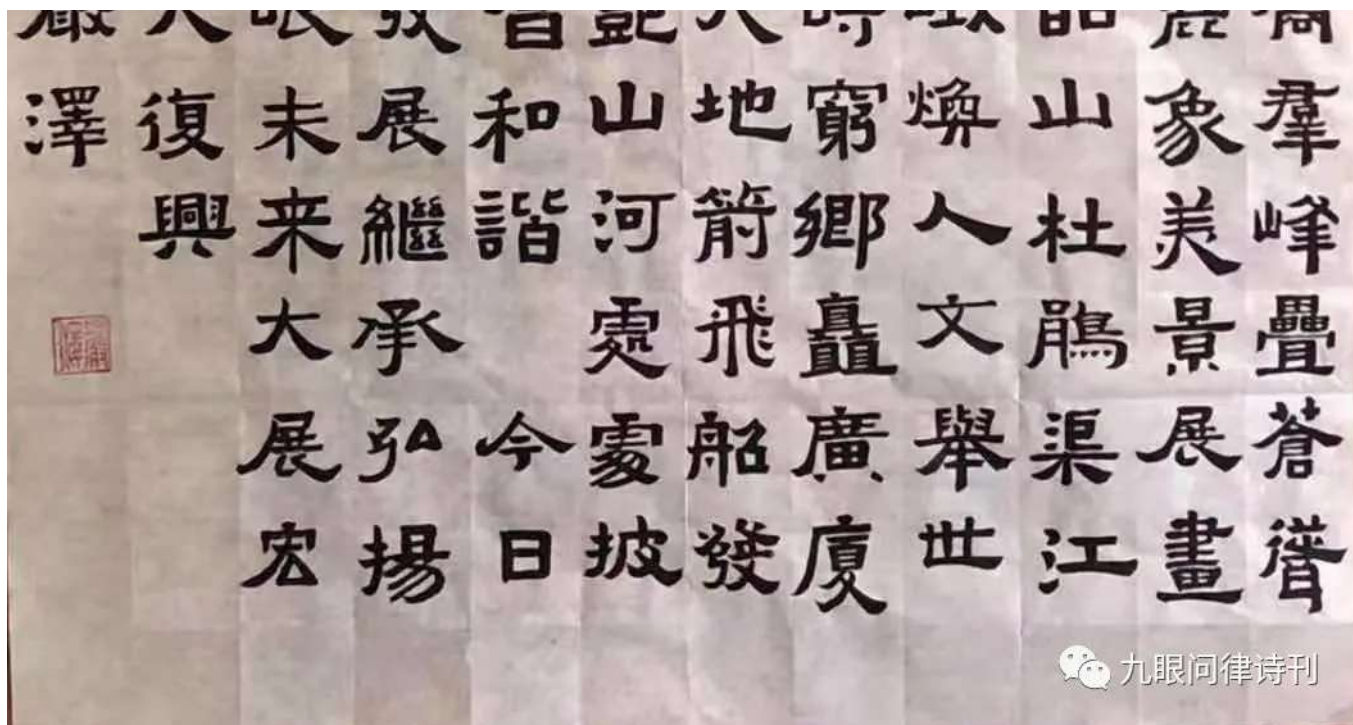 羣峰疊蒼
象美景展畫
山杜鵑渠江
煥人文舉世
時窮鄉矗廣廈
地箭飛船發
艷山河處處披
和諧 今日
展繼承弘揚
眼未来大展宏
復興
嚴澤
九眼问律诗刊